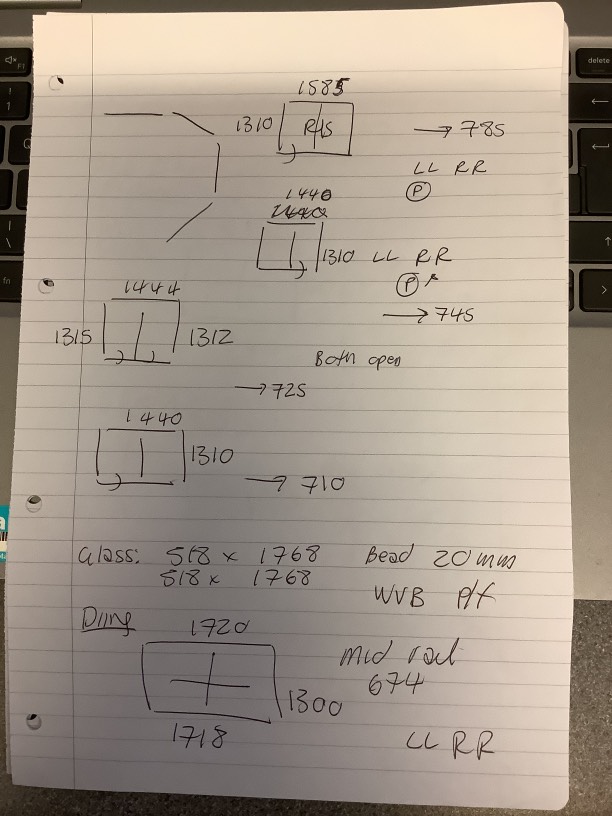 1585
1310 RHS → 785
LL RR
P
1440
1310 LL RR
P
→ 745
1444
1315 1312
Both open
→ 725
1440
1310
→ 710
Glass: 518 x 1768 Bead 20mm
518 x 1768
WVB P/F
1720
Mid rail
674
1300
1718
LL RR